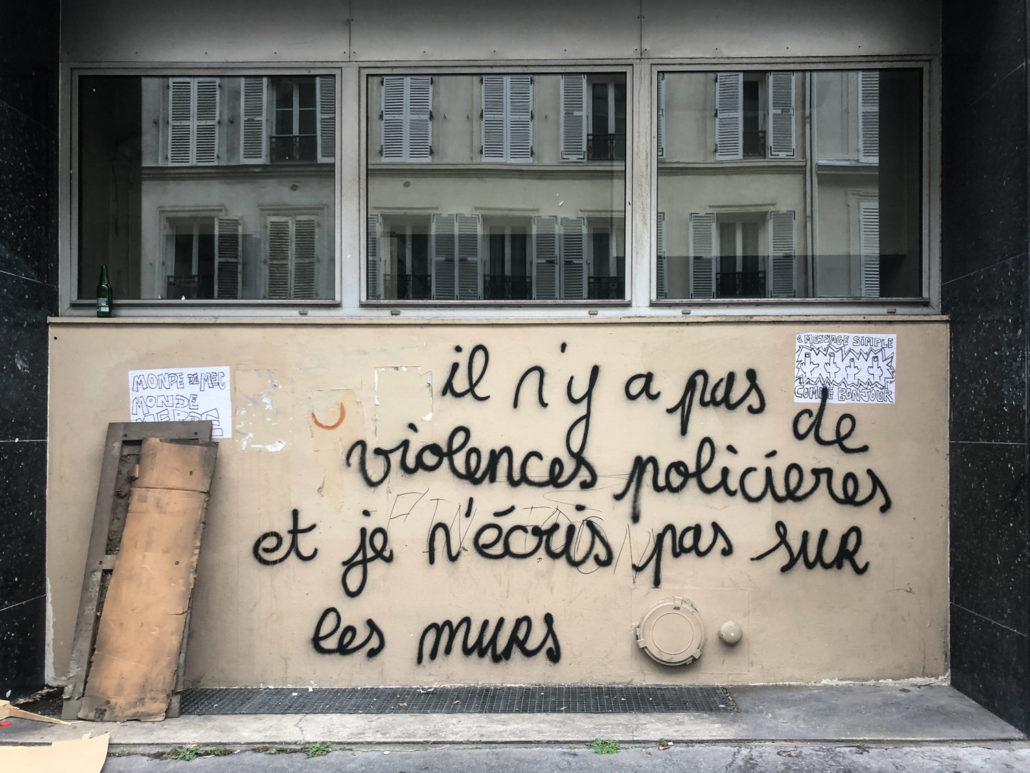 MONDE DE MEC
MONDE
MERDE
MESSAGE SIMPLE
COMME BONJOUR
il n'y a pas de
violences policières
et je n'écris pas sur
les murs